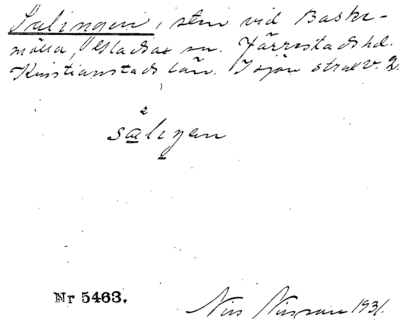 Sälingen, sten vid Baske-
mölla, Gladsax sn. Järrestads hd.
Kristianstads län. I sjön strax v. 2.
sälinen
Nr 5463.
Nils Nilsson 1931.